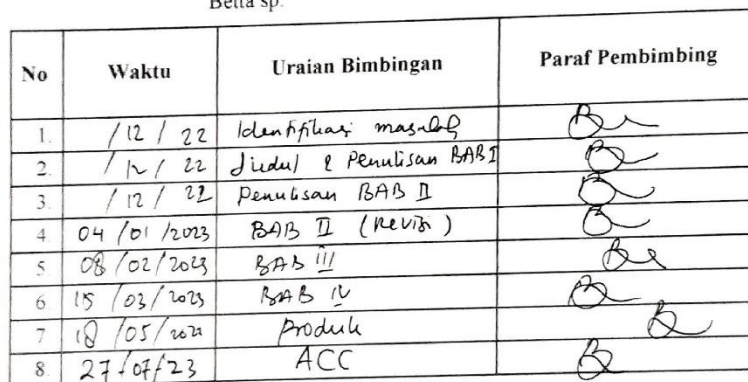 Betta sp.
No Waktu Uraian Bimbingan Paraf Pembimbing
1. /12/22 Identifikasi masalah
2. /12/22 Judul & Penulisan BAB I
3. /12/22 Penulisan BAB II
4 04/01/2023 BAB II (Revisi)
5 08/02/2023 BAB III
6 15/03/2023 BAB IV
7 18/05/2023 Produk
8. 27/07/23 ACC